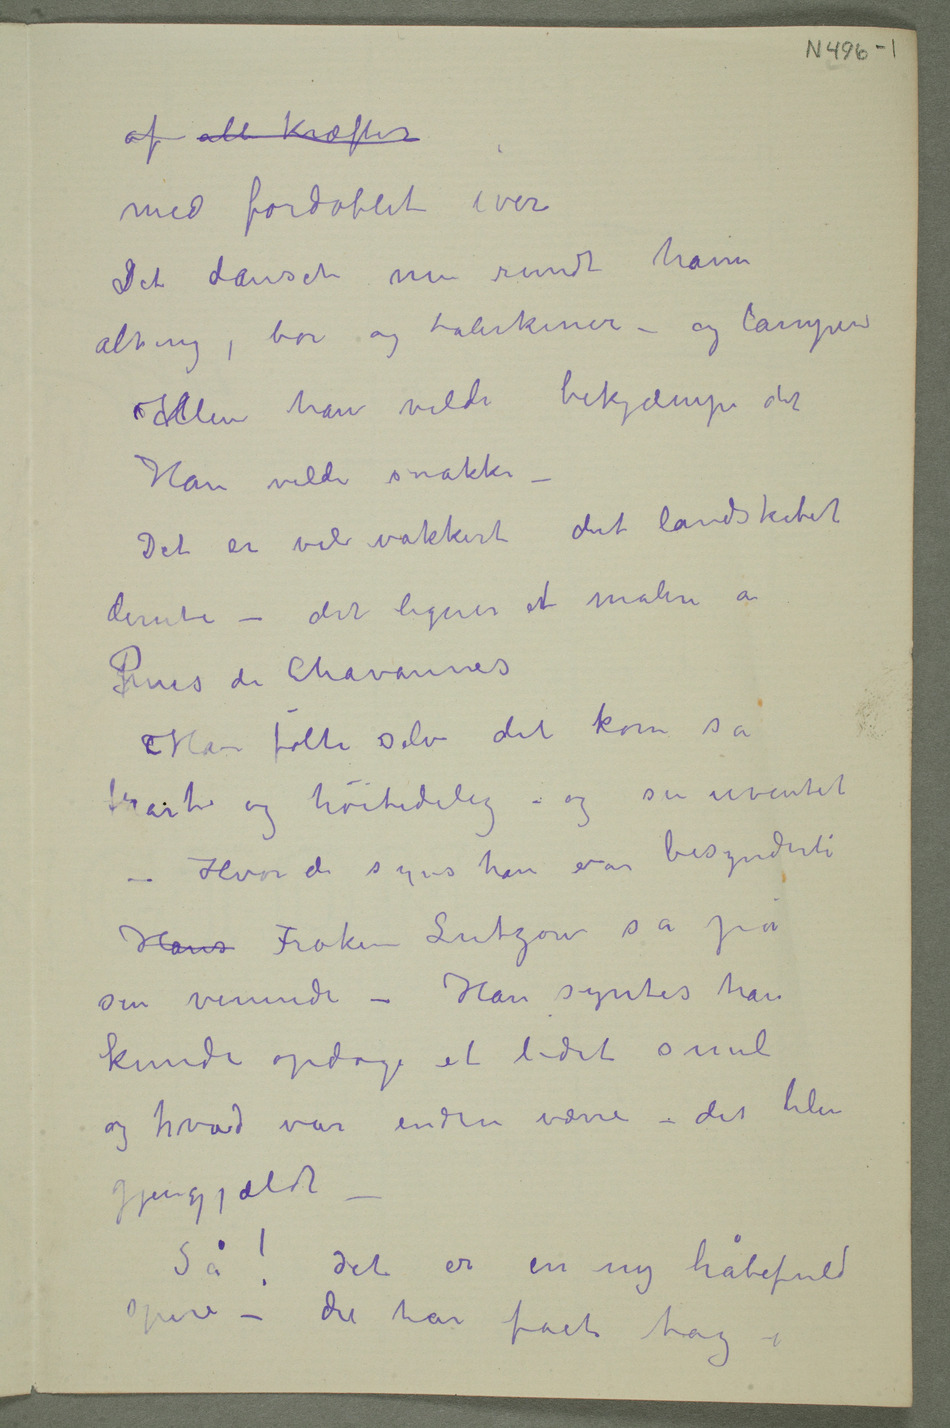 N496-1
af alle Kræfter
med fordoblet iver
Det dansed nu rundt ham
alting, bor og talerkener – og lampen
Men han vilde bekjæmpe det
Han vilde snakke –
Det er vel vakkert det landskabet
derute – det ligner et maleri a
Puvis de Chavannes
Han følte selv det kom så
og høitidelig – og så uventet
– Hvor de syns han var besynderli
Hans Frøken Lutzow sa på
sin veninde – Han syntes han
kunde opdage et lidet smil
og hvad var endnu værre – det blev
gjengjældt –
Så! det er en ny håbefuld
spire – de har faet tag i